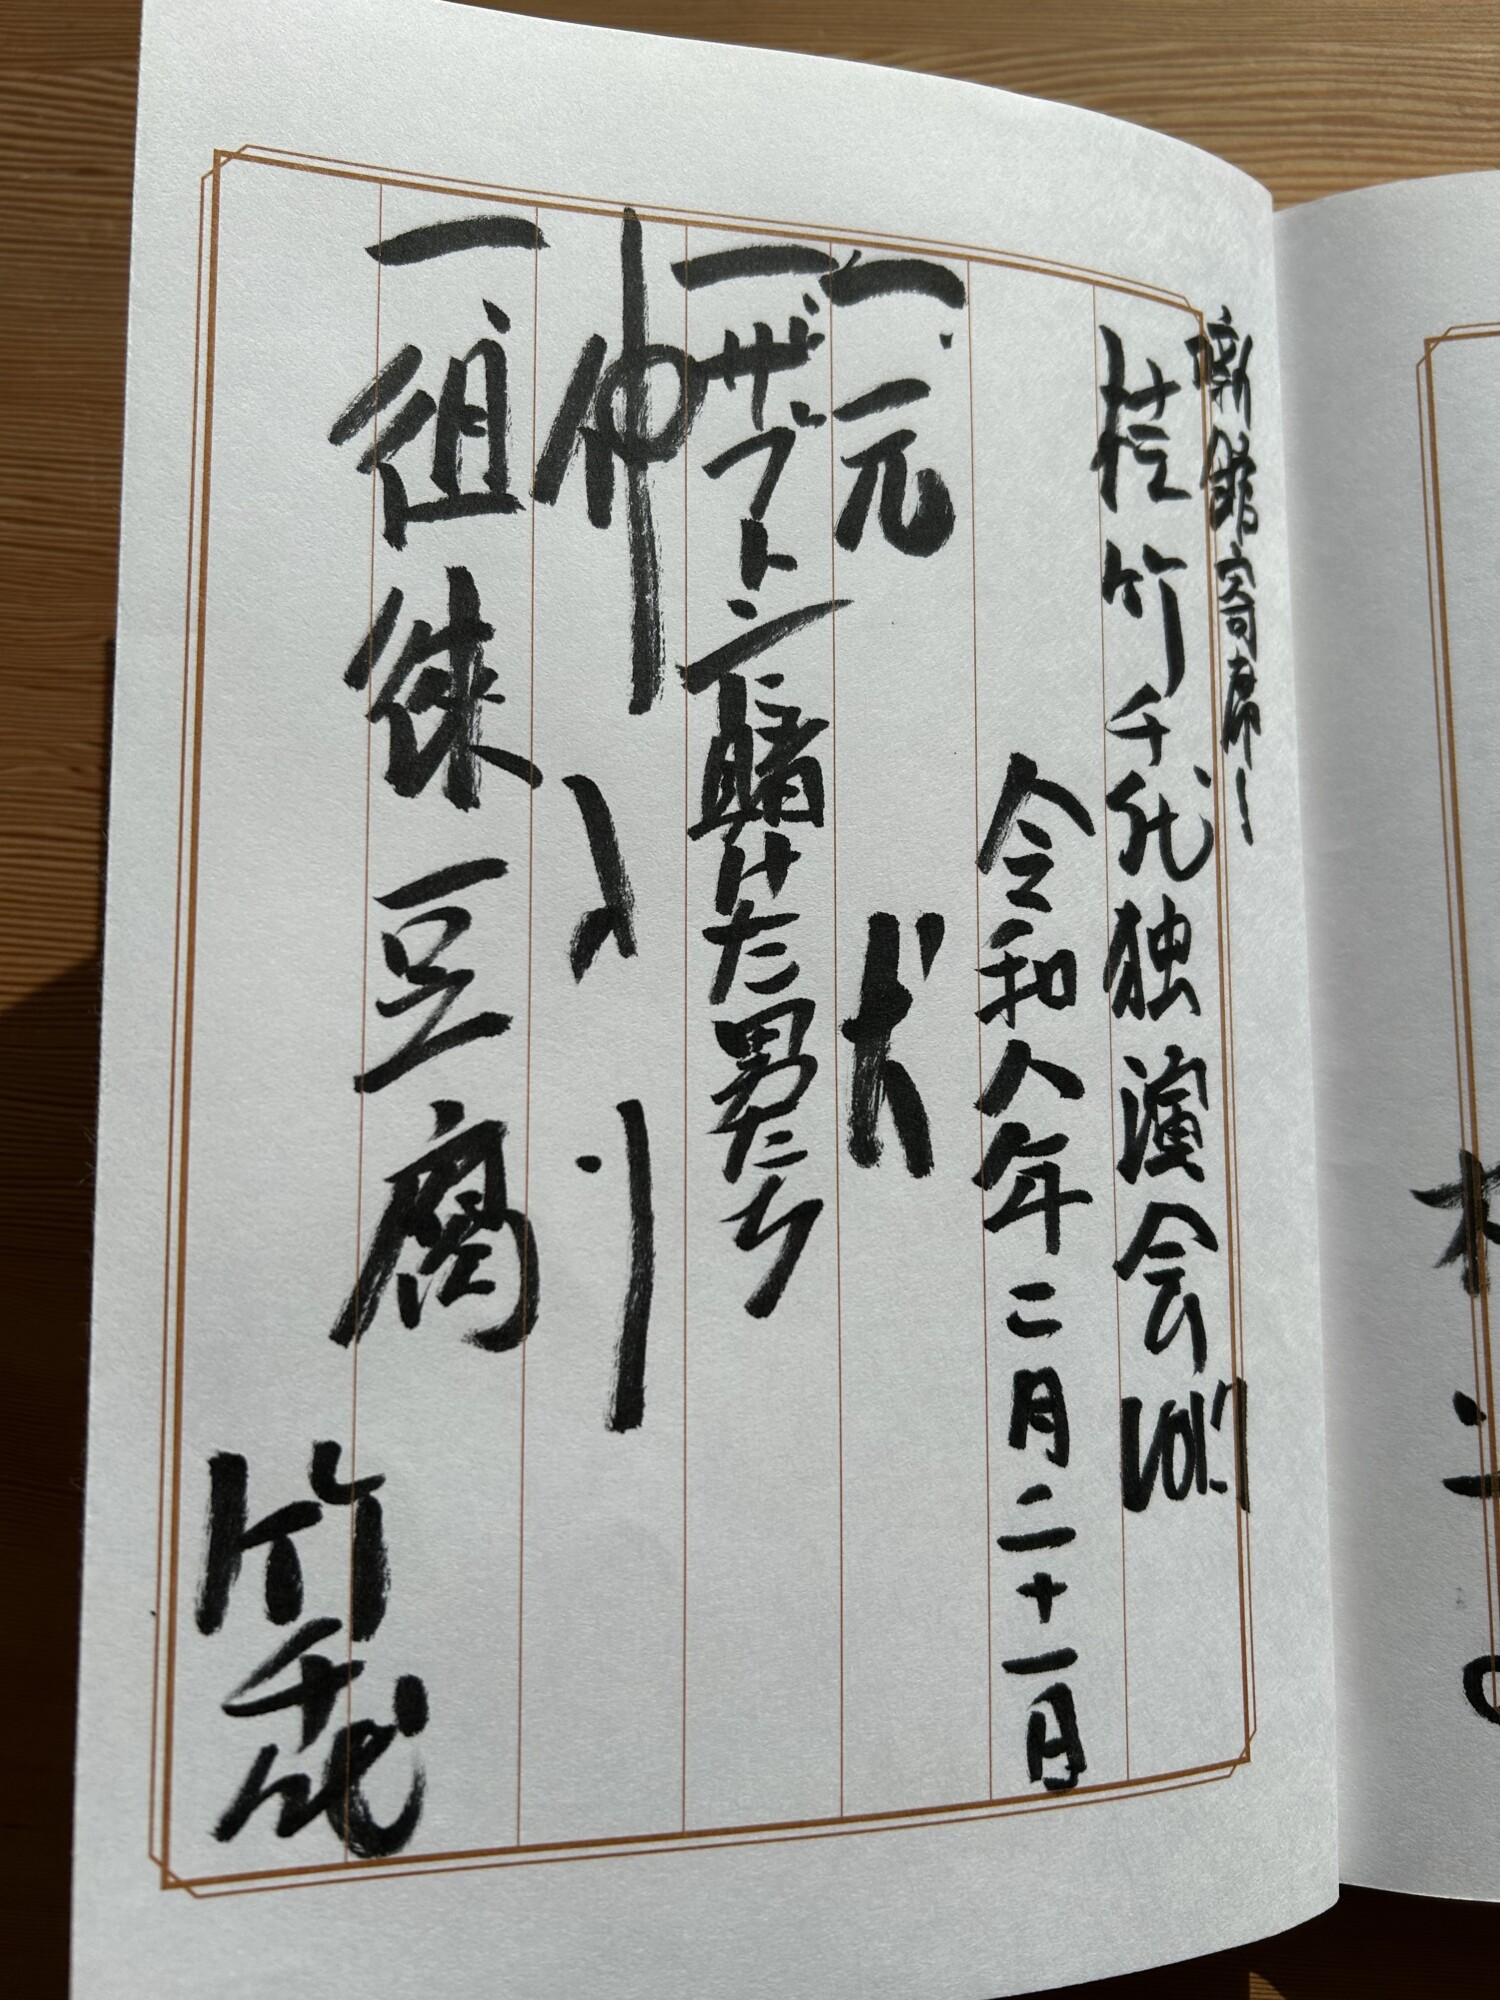 噺館寄席〜
桂竹千代独演会 vol.7
令和八年二月二十一日
一、元犬
一 ザブトンに賭けた男たち
仲入り
一 徂徠豆腐
竹千代